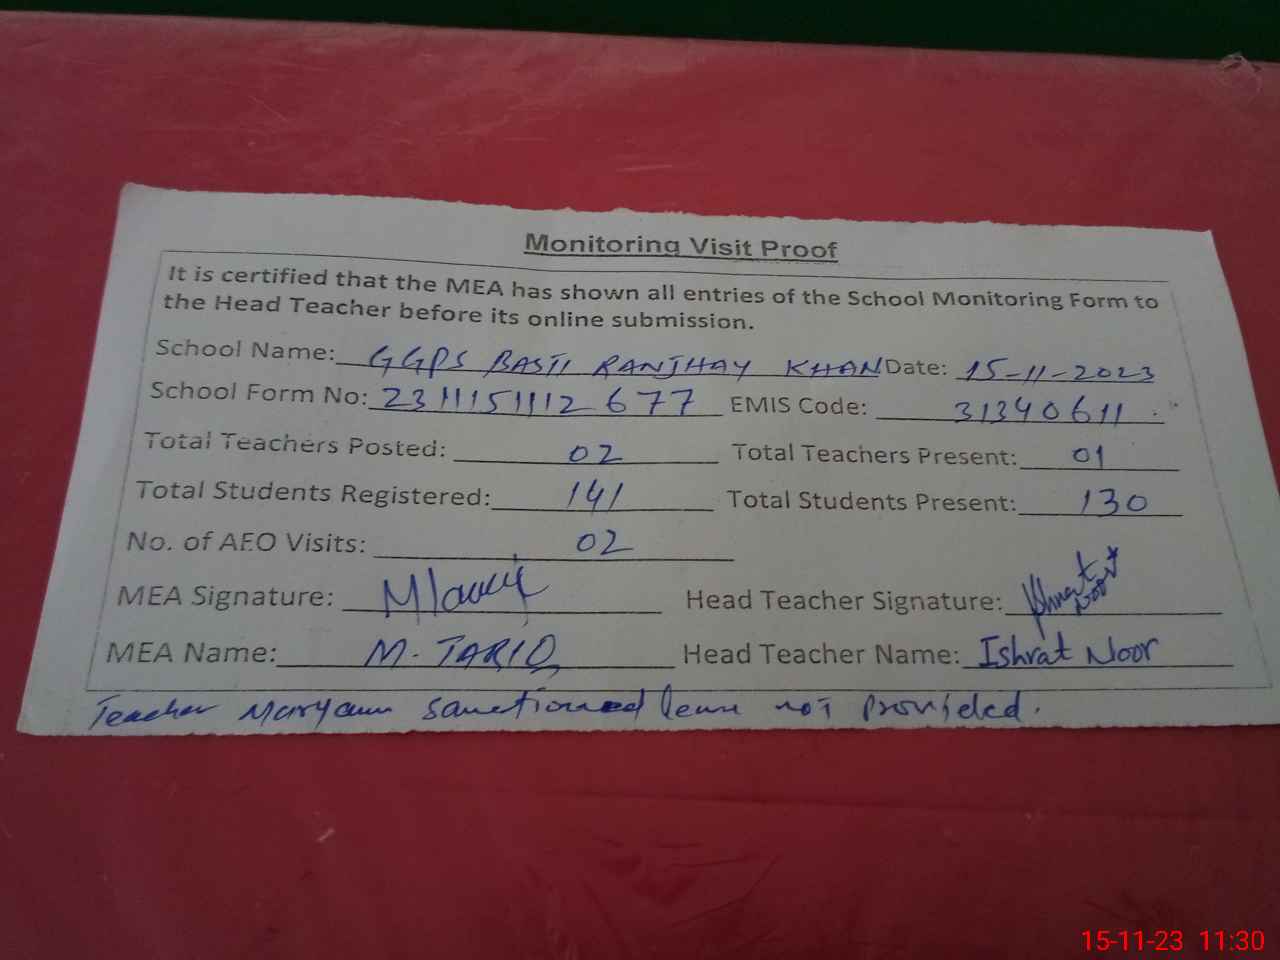 Monitoring Visit Proof
It is certified that the MEA has shown all entries of the School Monitoring Form to
the Head Teacher before its online submission.
School Name: GGPS BASTI RANJHAY KHAN Date: 15-11-2023
School Form No: 2311151112677 EMIS Code: 31340611
Total Teachers Posted: 02 Total Teachers Present: 01
Total Students Registered: 141 Total Students Present: 130
No. of AEO Visits: 02
MEA Signature: Head Teacher Signature: Ishrat Noor
MEA Name: M. TARIQ Head Teacher Name: Ishrat Noor
Teacher Maryam sanctioned leave not provided.
15-11-23 11:30